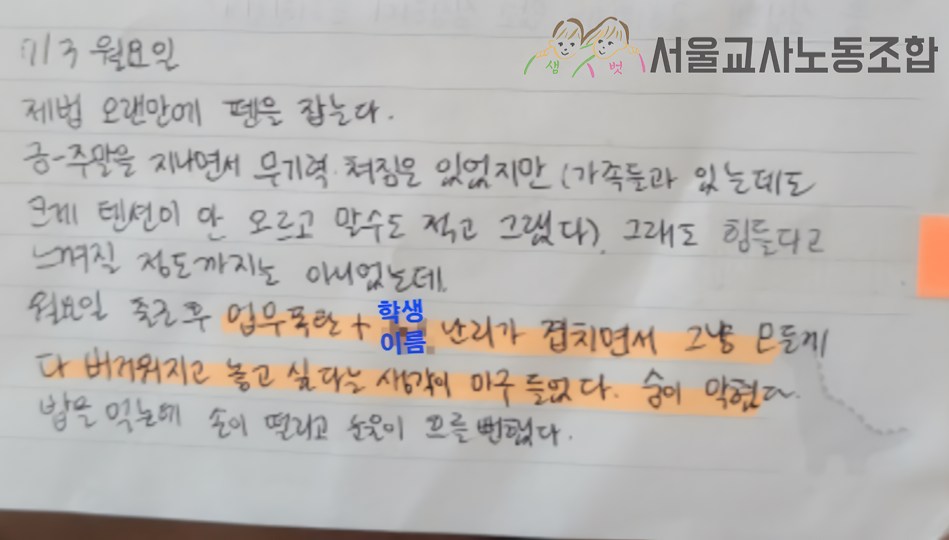 샘 벗 서울교사노동조합
7/3 월요일
제법 오랜만에 펜을 잡는다.
금-주말을 지나면서 무기력·쳐짐은 있었지만 (가족들과 있는데도
크게 텐션이 안 오르고 말수도 적고 그랬다). 그래도 힘들다고
느껴질 정도까지는 아니었는데.
월요일 출근 후 업무폭탄 + 학생 이름 난리가 겹치면서 그냥 모든게
다 버거워지고 놓고 싶다는 생각이 마구 들었다. 숨이 막혔다.
밥을 먹는데 손이 떨리고 눈물이 흐를 뻔했다.